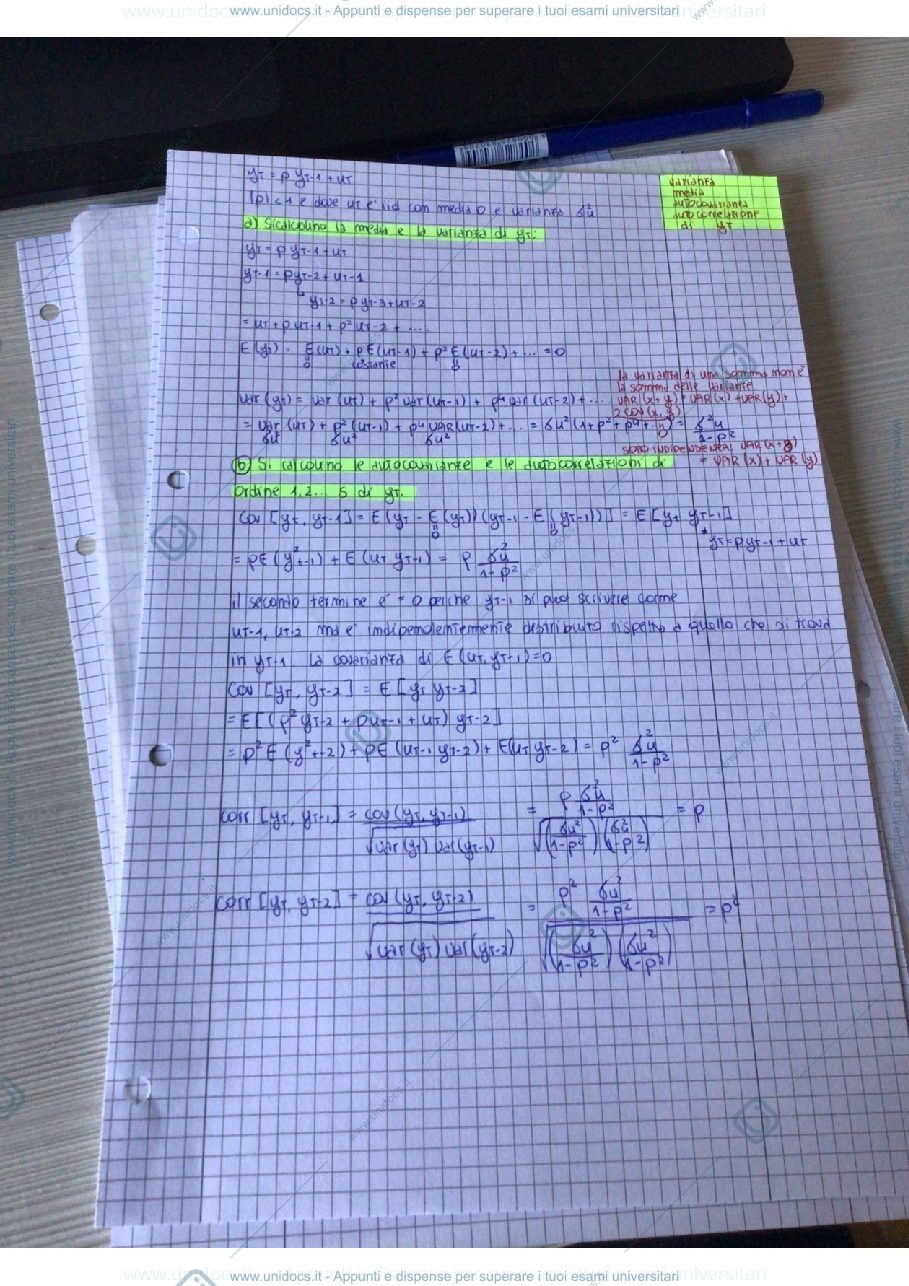 www.unidocs.it - Appunti e dispense per superare i tuoi esami universitari
yt = ρ yt-1 + ut
|ρ| < 1 e dove ut è iid con media 0 e varianza σ²u
varianza
media
autocovarianza
autocorrelazione
di yt
a) Si calcolino la media e la varianza di yt:
yt = ρ yt-1 + ut
yt-1 = ρyt-2 + ut-1
yt-2 = ρ yt-3 + ut-2
= ut + ρ ut-1 + ρ² ut-2 + ...
E(yt) = E(ut) + ρE(ut-1) + ρ² E(ut-2) + ... = 0
0 costante 0
la varianza di una somma non è
la somma delle varianze
VAR(x+y) = VAR(x) + VAR(y) +
2 cov(x,y)
0
Var(yt) = var(ut) + ρ² var(ut-1) + ρ⁴ var(ut-2) + ...
= var(ut) + ρ²(ut-1) + ρ⁴ VAR(ut-2) + ... = σu²(1+ρ²+ρ⁴+...) = σ²u / 1-ρ²
σu² σu² σu²
sono INDIPENDENTI: VAR(x+y)
= VAR(x) + VAR(y)
b) Si calcolino le autocovarianze e le autocorrelazioni di
ordine 1,2... s di yt.
Cov[yt, yt-1] = E(yt - E(yt))(yt-1 - E(yt-1))] = E[yt yt-1]
0 0
yt = ρyt-1 + ut
= ρE(y²t-1) + E(ut yt-1) = ρ σ²u / 1-ρ²
il secondo termine è = 0 perché yt-1 si può scrivere come
ut-1, ut-2 ma è indipendentemente distribuito rispetto a quello che si trova
in yt-1. La covarianza di E(ut, yt-1) = 0
Cov[yt, yt-2] = E[yt yt-2]
= E[(ρ² yt-2 + ρut-1 + ut) yt-2]
= ρ² E(y²t-2) + ρE(ut-1 yt-2) + E(ut yt-2) = ρ² σ²u / 1-ρ²
corr[yt, yt-1] = cov(yt, yt-1) / √var(yt) var(yt-1) = ρ σ²u / 1-ρ² / √(σu² / 1-ρ²)(σu² / 1-ρ²) = ρ
corr[yt, yt-2] = cov(yt, yt-2) / √var(yt) var(yt-2) = ρ² σu² / 1-ρ² / √(σu² / 1-ρ²)(σu² / 1-ρ²) = ρ²
www.unidocs.it - Appunti e dispense per superare i tuoi esami universitari